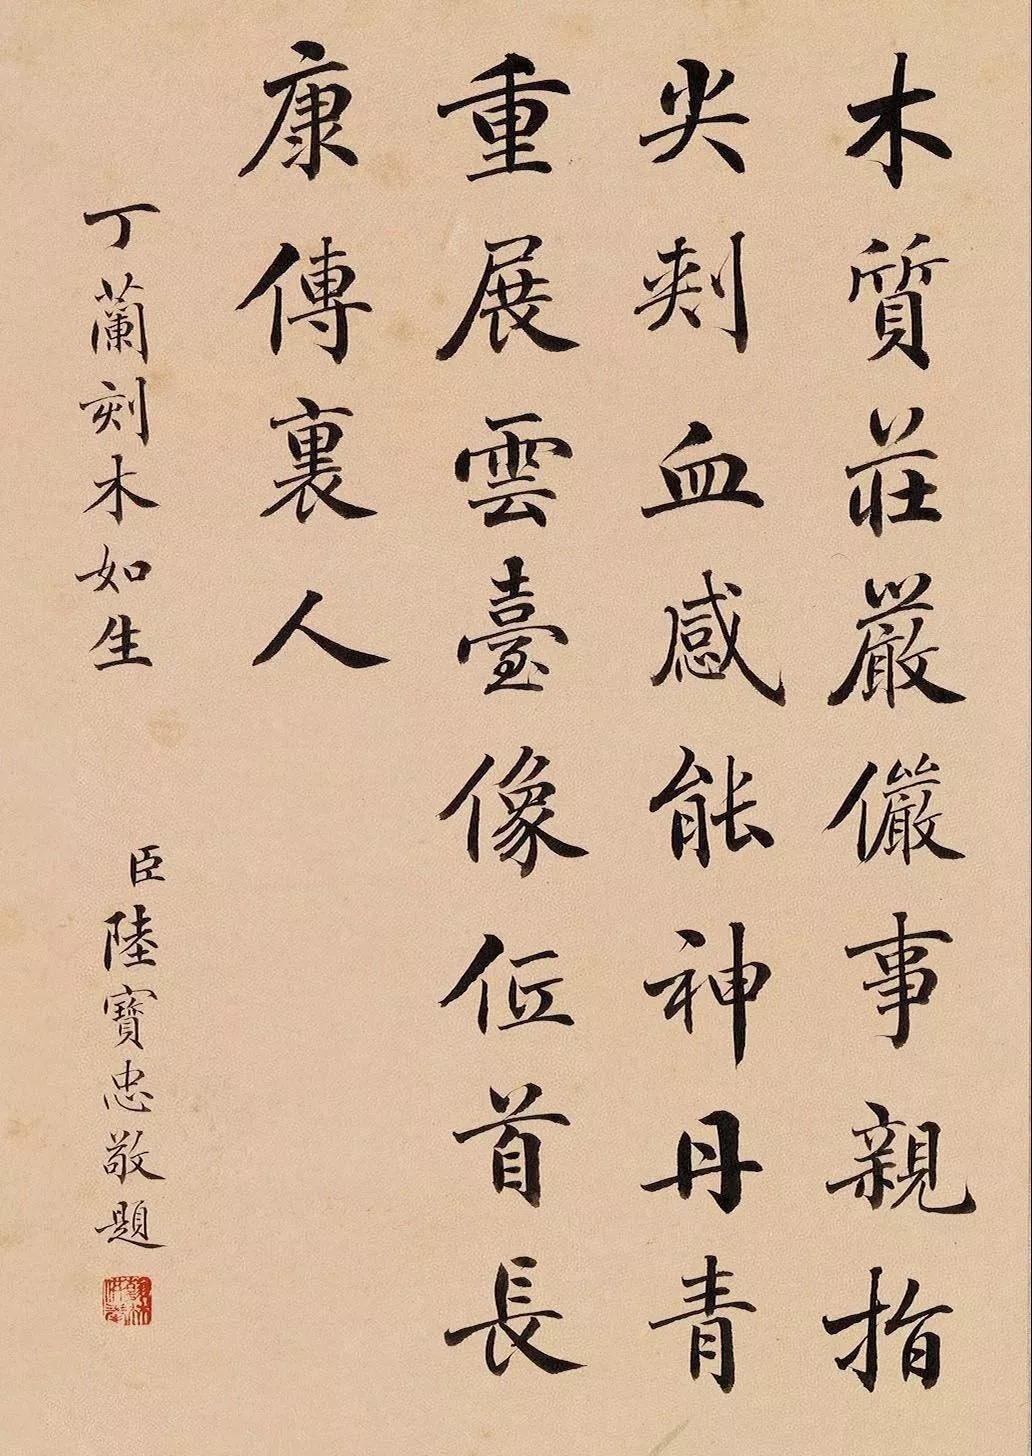 木質莊嚴儼事親指
尖刺血感能神丹青
重展雲臺像低首長
康傳裏人
丁蘭刻木如生
臣陸寶忠敬題
翰林供奉